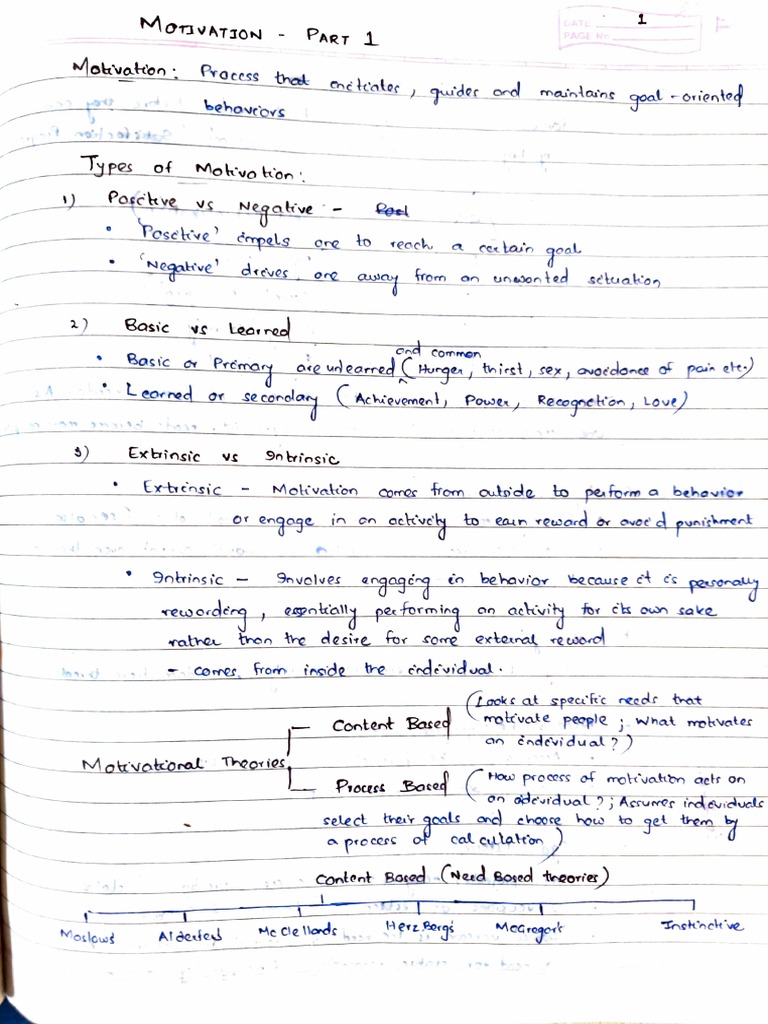 DATE
1
PAGE No
MOTIVATION - PART 1
Motivation: Process that initiates, guides and maintains goal-oriented
behaviors
Types of Motivation:
1) Positive vs Negative -
• 'Positive' impels one to reach a certain goal
• 'Negative' drives one away from an unwanted situation
2) Basic vs Learned
and common
• Basic or Primary are unlearned (Hunger, thirst, sex, avoidance of pain etc.)
• Learned or secondary (Achievement, Power, Recognition, Love)
3) Extrinsic vs Intrinsic
• Extrinsic - Motivation comes from outside to perform a behavior
or engage in an activity to earn reward or avoid punishment
• Intrinsic - Involves engaging in behavior because it is personally
rewarding, essentially performing an activity for its own sake
rather than the desire for some external reward
- comes from inside the individual.
Motivational Theories
Content Based (Looks at specific needs that
motivate people; What motivates
an individual?)
Process Based (How process of motivation acts on
an individual?; Assumes individuals
select their goals and choose how to get them by
a process of calculation)
Content Based (Need Based theories)
Maslows Alderfers McClellands HerzBergs McGregors Instinctive